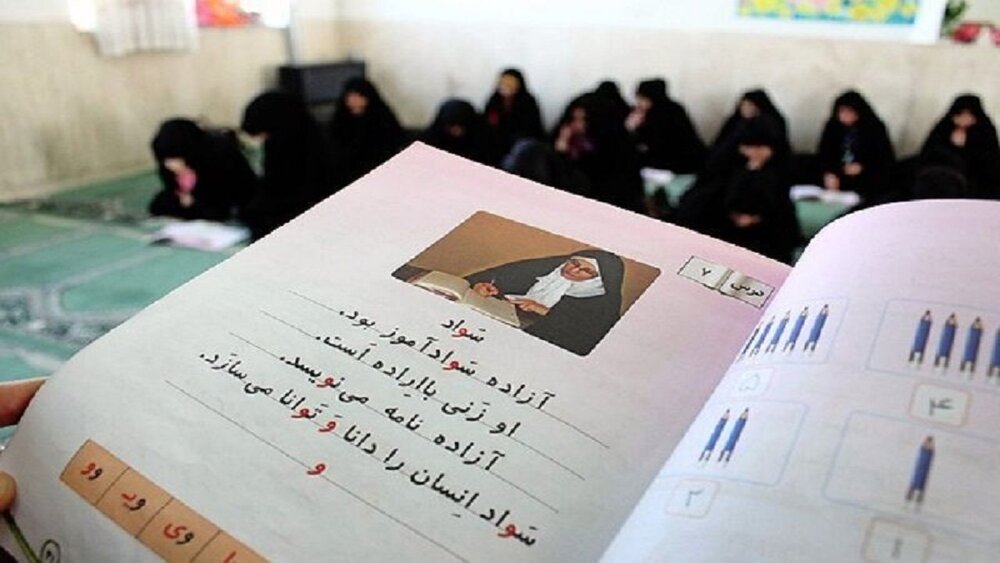 درس ۷
سَواد
آزاده سَوادآموز بود.
او زَنی بااِراده اَست.
آزاده نامه می‌نِویسد.
سَواد اِنسان را دانا وَ تَوانا می‌سازَد.
و
وو ویـ وی
۵ ۴
۲ ۱